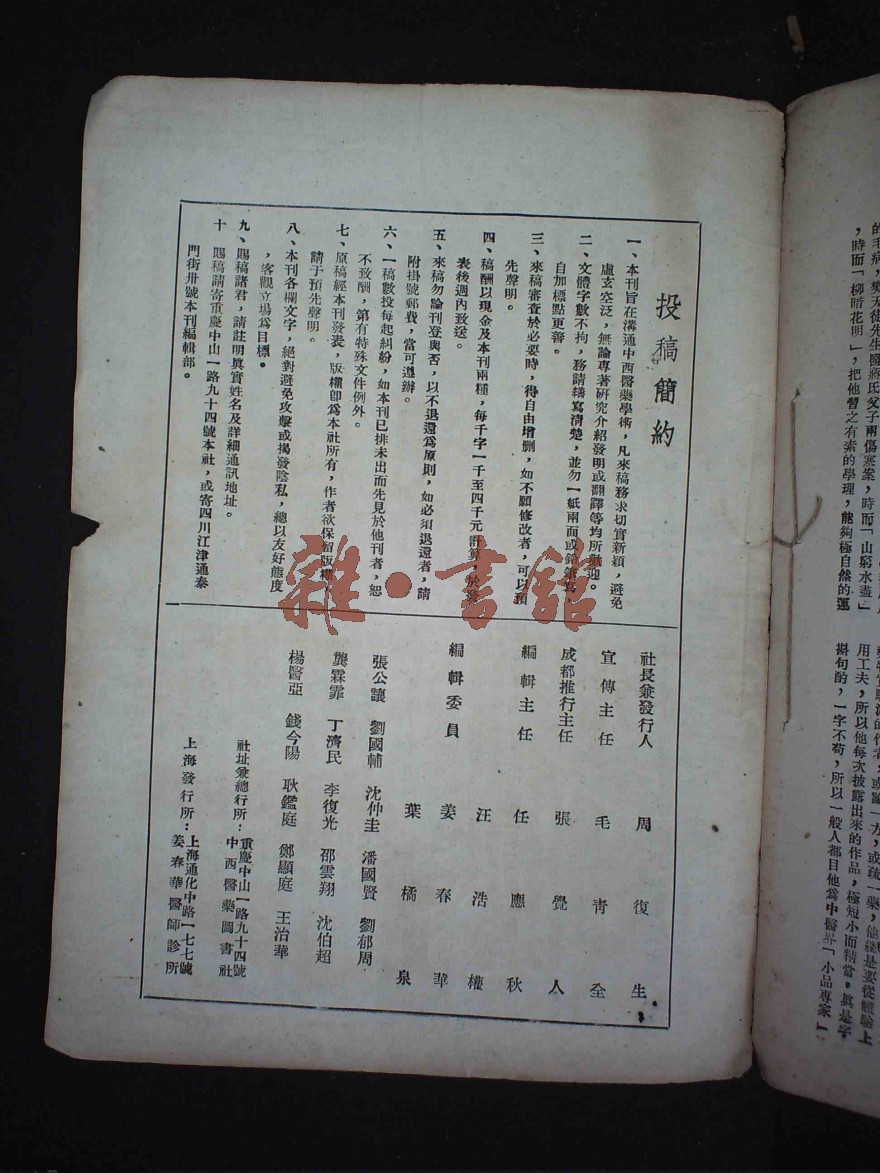 投稿簡約
一、本刊旨在溝通中西醫藥學術，凡來稿務求切實新穎，避免
虛玄空泛，無論專著研究介紹發明或翻譯等均所歡迎。
二、文體字數不拘，務請繕寫清楚，並勿一紙兩面或鉛筆寫，
自加標點更善。
三、來稿審查於必要時，得自由增删，如不願修改者，可以預
先聲明。
四、稿酬以現金及本刊兩種，每千字一千至四千元計算，於發
表後週內致送。
五、來稿勿論刊登與否，以不退還爲原則，如必須退還者，請
附掛號郵費，當可遵辦。
六、一稿數投每起糾紛，如本刊已排未出而先見於他刊者，恕
不致酬，第有特殊文件例外。
七、原稿經本刊發表，版權卽爲本社所有，作者欲保留版權，
請于預先聲明。
八、本刊各欄文字，絕對避免攻擊或揭發陰私，總以友好態度
，客觀立場爲目標。
九、賜稿諸君，請註明眞實姓名及詳細通訊地址。
十、賜稿請寄重慶中山一路九十四號本社，或寄四川江津通泰
門街卅號本刊編輯部。
社長兼發行人　周復生
宣傳主任　毛青全
成都推行主任　張覺人
編輯主任　任應秋
汪浩權
編輯委員　姜春華
葉橘泉
張公讓　劉國輔　沈仲圭　潘國賢　劉郁周
龔霖霏　丁濟民　李復光　邵雲翔　沈伯超
楊醫亞　錢今陽　耿鑑庭　鄭顯庭　王治華
社址兼總行所：重慶中山一路九十四號
中西醫藥圖書社
上海發行所：上海通化中路一七七號
姜春華醫師診所
雜·書館
用工夫，所以他每次披露出來的作品，極短小而精當，眞是字
斟句酌，一字不苟，所以一般人都目他爲中醫界「小品專家」
的毛病，奐天徒先生醫蔣氏父子兩傷寒案，時而「山窮水盡」
，時而「柳暗花明」，把他習之有素的學理，能夠極自然的運